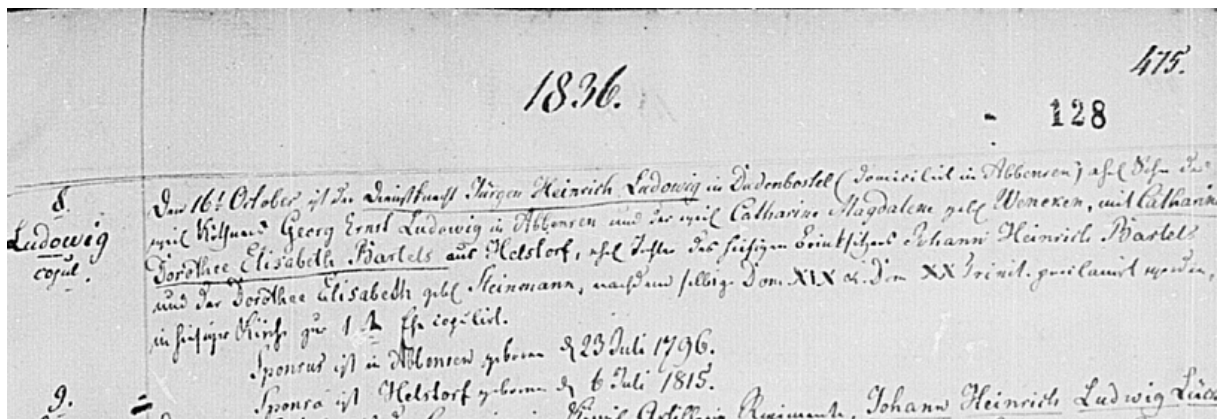 475.
1836.
128
8.
Ludowig
copul.
Den 16t October ist der Dienstknecht Jürgen Heinrich Ludowig in Dudenbostel (domicilirt in Abbensen) ehel Sohn des
weil Köthners Georg Ernst Ludowig in Abbensen und der weil Catharine Magdalene geb Woneken, mit Catharine
Dorothee Elisabeth Bartels aus Helstorf, ehel Tochter des hiesigen Brinksitzers Johann Heinrich Bartels
und der Dorothee Elisabeth geb Steinmann, nachdem selbige Dom. XIX & Dom XX Trinit. proclamirt worden,
in hiesiger Kirche zur 1 Ehe copulirt.
Sponsus ist in Abbensen geboren d 23 Juli 1796.
Sponsa ist Helstorf geboren d 6 Juli 1815.
9.
Artillerie Regimente, Johann Heinrich Ludwig